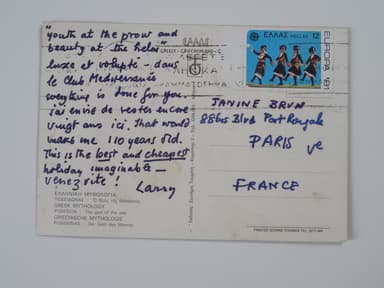 "youth at the prow and
beauty at the helm"
luxe et volupté - dans
le Club Mediterranée
everything is done for you.
j'ai envie de rester encore
vingt ans ici. That would
make me 110 years old.
This is the best and cheapest
holiday imaginable -
venez vite!
Larry
ΕΛΛΗΝΙΚΗ ΜΥΘΟΛΟΓΙΑ
ΠΟΣΕΙΔΩΝΑΣ : Ο θεός της θάλασσας
GREEK MYTHOLOGY
POSEIDON : The god of the sea
GRIECHISCHE MYTHOLOGIE
POSEIDONAS : Der Gott des Meeres
ΕΛΛΑΣ HELLAS 12
EUROPA 1981
JANINE BRUN
Blvd Port Royale
PARIS Ve
FRANCE